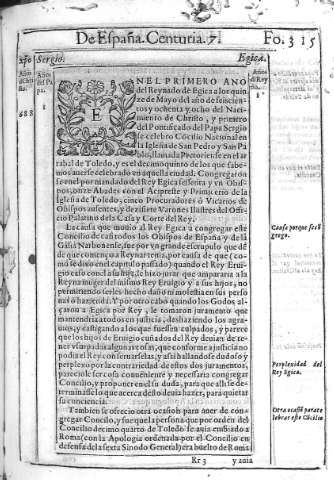 De España. Centuria. 7. Fo. 315
Año Sergio. Egica.
Años del Pa pa.
Años de Rey
688
1
1
EN EL PRIMERO AÑO
del Reynado de Egica a los quin
ze de Mayo del año de seiscien-
tos y ochenta y ocho del Naci-
miento de Christo, y primero
del Pontificado del Papa Sergio
se celebro Cōcilio Nacional en
la Iglesia de San Pedro y San
Pablo, llamada Pretoriense en el ar
rabal de Toledo, y es el decimoquinto de los que sabe-
mos auerse celebrado en aquella ciudad. Congregarō
se en el por mandado del Rey Egica sesenta y vn Obis-
pos, onze Abades con el Acipreste y Primicerio de la
Iglesia de Toledo, cinco Procuradores ò Vicarios de
Obispos ausentes, y dezisiete Varones Illustres del Offi-
cio Palatino de la Casa y Corte del Rey.
La causa que mouio al Rey Egica a congregar este
Concilio de casi todos los Obispos de España y de la
Galia Narbonense, fue por vn grande escrupulo que des
de que començo a Reynar tenia, por causa de que (co-
mo se dixo en el capitulo passado) quando el Rey Eruigio
le caso con la su hija, le hizo jurar que ampararia a la
Reyna muger del mismo Rey Eruigio y a sus hijos, no
permitiendo serles hecho daño ni molestia en sus perso
nas o hazienda. Y por otro cabo quando los Godos al-
çaron a Egica por Rey, le tomaron juramento que
mantendria a todos en justicia, deshaziendo los agra-
uios, y castigando a los que fuessen culpados, y parece
que los hijos de Eruigio cuñados del Rey deuian de te-
ner vsurpadas algunas cosas, que conforme a justicia no
podia el Rey conseruarselas, y assi hallandose dudoso y
perplexo por la contrariedad de estos dos juramentos,
pareciole ser cosa conueniente y necessaria congregar
Concilio, y proponer en el su duda, para que alli se de-
terminasse lo que acerca dello deuia hazer, para quietar
su conciencia.
Tambien se ofrecio otra ocasion para auer de con-
gregar Concilio, y fue que la persona que por orden del
Concilio decimo quarto de Toledo se auia embiado a
Roma (con la Apologia ordenada por el Concilio en
defensa de la sexta Sinodo General) era buelto de Roma
Rr 3 y auia
Causa porque se cō
grego.
Perplexidad del
Rey Egica.
Otra ocasiō para ce
lebrar este Cōcilio